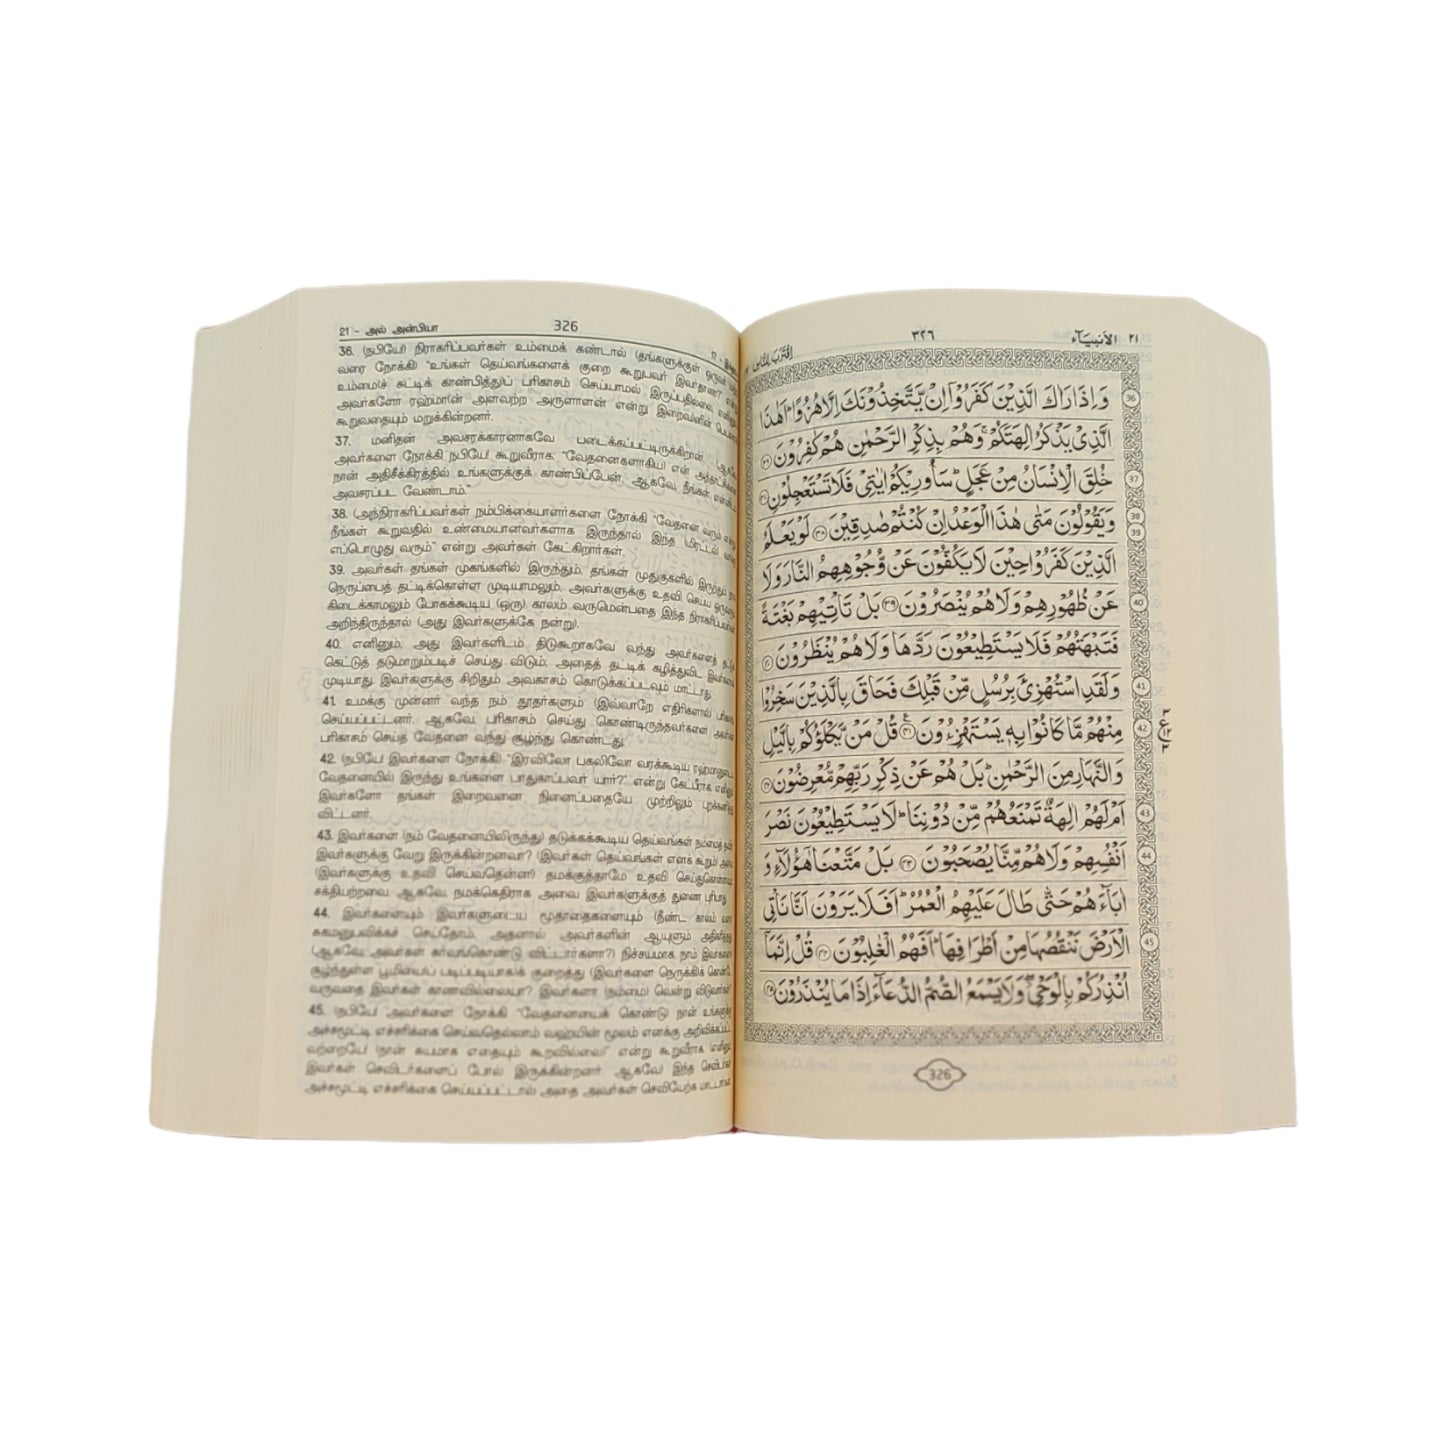 21 - அல் அன்பியா 326
36. (நபியே!) நிராகரிப்பவர்கள் உம்மைக் கண்டால் (தங்களுக்குள் ஒருவர்
வரை நோக்கி) "உங்கள் தெய்வங்களைக் குறை கூறுபவர் இவர்தானா?"
உம்மை(ச் சுட்டிக் காண்பித்து)ப் பரிகாசம் செய்யாமல் இருப்பதில்லை,
அவர்களோ ரஹ்மா(ன் அளவற்ற அருளாளன் என்று இறைவனின்
கூறுவதையும் மறுக்கின்றனர்.
37. மனிதன் அவசரக்காரனாகவே படைக்கப்பட்டிருக்கிறான்.
அவர்களை நோக்கி நபியே! கூறுவீராக: "வேதனைகளாகிய) என்
நான் அதிசீக்கிரத்தில் உங்களுக்குக் காண்பிப்பேன், ஆகவே, நீங்கள்
அவசரப்பட வேண்டாம்."
38. (அந்நிராகரிப்பவர்கள் நம்பிக்கையாளர்களை நோக்கி "வேதனை வரும்
நீங்கள் கூறுவதில் உண்மையானவர்களாக இருந்தால் இந்த (மிரட்டல்
எப்பொழுது வரும்" என்று அவர்கள் கேட்கிறார்கள்.
39. அவர்கள் தங்கள் முகங்களில் இருந்தும், தங்கள் முதுகுகளில் இருந்தும்
நெருப்பைத் தட்டிக்கொள்ள முடியாமலும், அவர்களுக்கு உதவி செய்ய
கிடைக்காமலும் போகக்கூடிய (ஒரு) காலம் வருமென்பதை இந்த
அறிந்திருந்தால் (அது இவர்களுக்கே நன்று).
40. எனினும், அது இவர்களிடம் திடுகூறாகவே வந்து அவர்களைத்
கெட்டுத் தடுமாறும்படிச் செய்து விடும்; அதைத் தட்டிக் கழித்துவிட
முடியாது. இவர்களுக்கு சிறிதும் அவகாசம் கொடுக்கப்படவும் மாட்டாது.
41. உமக்கு முன்னர் வந்த நம் தூதர்களும் (இவ்வாறே எதிரிகளால்)
செய்யப்பட்டனர். ஆகவே, பரிகாசம் செய்து கொண்டிருந்தவர்களை
பரிகாசம் செய்த வேதனை வந்து சூழ்ந்து கொண்டது.
42. (நபியே! இவர்களை நோக்கி) "இரவிலோ பகலிலோ வரக்கூடிய
வேதனையில் இருந்து உங்களை பாதுகாப்பவர் யார்?" என்று கேட்பீராக.
இவர்களோ தங்கள் இறைவனை நினைப்பதையே முற்றிலும்
விட்டனர்.
43. இவர்களை (நம் வேதனையிலிருந்து) தடுக்கக்கூடிய தெய்வங்கள்
இவர்களுக்கு வேறு இருக்கின்றனவா? (இவர்கள் தெய்வங்கள் எனக் கூறும்
(இவர்களுக்கு உதவி செய்வதென்ன!) தமக்குத்தாமே உதவி
சக்தியற்றவை. ஆகவே, நமக்கெதிராக அவை இவர்களுக்குத் துணை
44. இவர்களையும் இவர்களுடைய மூதாதைகளையும் (நீண்ட காலம்
சுகமனுபவிக்கச் செய்தோம். அதனால் அவர்களின் ஆயுளும்
(ஆகவே, அவர்கள் கர்வங்கொண்டு விட்டார்களா?) நிச்சயமாக நாம்
சூழ்ந்துள்ள பூமியைப் படிப்படியாகக் குறைத்து (இவர்களை நெருக்கிக்
வருவதை இவர்கள் காணவில்லையா? இவர்களா (நம்மை) வென்று
45. (நபியே! அவர்களை நோக்கி "வேதனையைக் கொண்டு) நான்
அச்சமூட்டி எச்சரிக்கை செய்வதெல்லாம் வஹ்யின் மூலம் எனக்கு
(நான் சுயமாக எதையும் கூறவில்லை)" என்று கூறுவீராக
இவர்கள் செவிடர்களைப் போல் இருக்கின்றனர். ஆகவே! இந்த
அச்சமூட்டி எச்சரிக்கை செய்யப்பட்டால் அதை அவர்கள் செவியேற்க மாட்டார்கள்
اقترب للناس ٣٢٦ الأنبياء ٢١
وَاِذَا رَاٰكَ الَّذِيْنَ كَفَرُوْٓا اِنْ يَّتَّخِذُوْنَكَ اِلَّا هُزُوًا ؕ اَهٰذَا
الَّذِيْ يَذْكُرُ اٰلِهَتَكُمْ ۚ وَهُمْ بِذِكْرِ الرَّحْمٰنِ هُمْ كٰفِرُوْنَ ٣٦
خُلِقَ الْاِنْسَانُ مِنْ عَجَلٍ ؕ سَاُورِيْكُمْ اٰيٰتِيْ فَلَا تَسْتَعْجِلُوْنِ ٣٧
وَيَقُوْلُوْنَ مَتٰى هٰذَا الْوَعْدُ اِنْ كُنْتُمْ صٰدِقِيْنَ ٣٨ لَوْ يَعْلَمُ
الَّذِيْنَ كَفَرُوْا حِيْنَ لَا يَكُفُّوْنَ عَنْ وُّجُوْهِهِمُ النَّارَ وَلَا
عَنْ ظُهُوْرِهِمْ وَلَا هُمْ يُنْصَرُوْنَ ٣٩ بَلْ تَاْتِيْهِمْ بَغْتَةً
فَتَبْهَتُهُمْ فَلَا يَسْتَطِيْعُوْنَ رَدَّهَا وَلَا هُمْ يُنْظَرُوْنَ ٤٠
وَلَقَدِ اسْتُهْزِئَ بِرُسُلٍ مِّنْ قَبْلِكَ فَحَاقَ بِالَّذِيْنَ سَخِرُوْا
مِنْهُمْ مَّا كَانُوْا بِهٖ يَسْتَهْزِءُوْنَ ٤١ قُلْ مَنْ يَّكْلَؤُكُمْ بِالَّيْلِ
وَالنَّهَارِ مِنَ الرَّحْمٰنِ ؕ بَلْ هُمْ عَنْ ذِكْرِ رَبِّهِمْ مُّعْرِضُوْنَ ٤٢
اَمْ لَهُمْ اٰلِهَةٌ تَمْنَعُهُمْ مِّنْ دُوْنِنَا ؕ لَا يَسْتَطِيْعُوْنَ نَصْرَ
اَنْفُسِهِمْ وَلَا هُمْ مِّنَّا يُصْحَبُوْنَ ٤٣ بَلْ مَتَّعْنَا هٰٓؤُلَآءِ وَ
اٰبَآءَهُمْ حَتّٰى طَالَ عَلَيْهِمُ الْعُمُرُ ؕ اَفَلَا يَرَوْنَ اَنَّا نَاْتِي
الْاَرْضَ نَنْقُصُهَا مِنْ اَطْرَافِهَا ؕ اَفَهُمُ الْغٰلِبُوْنَ ٤٤ قُلْ اِنَّمَآ
اُنْذِرُكُمْ بِالْوَحْيِ ۖ وَلَا يَسْمَعُ الصُّمُّ الدُّعَآءَ اِذَا مَا يُنْذَرُوْنَ ٤٥
36
37
38
39
40
41
42
43
44
45
326